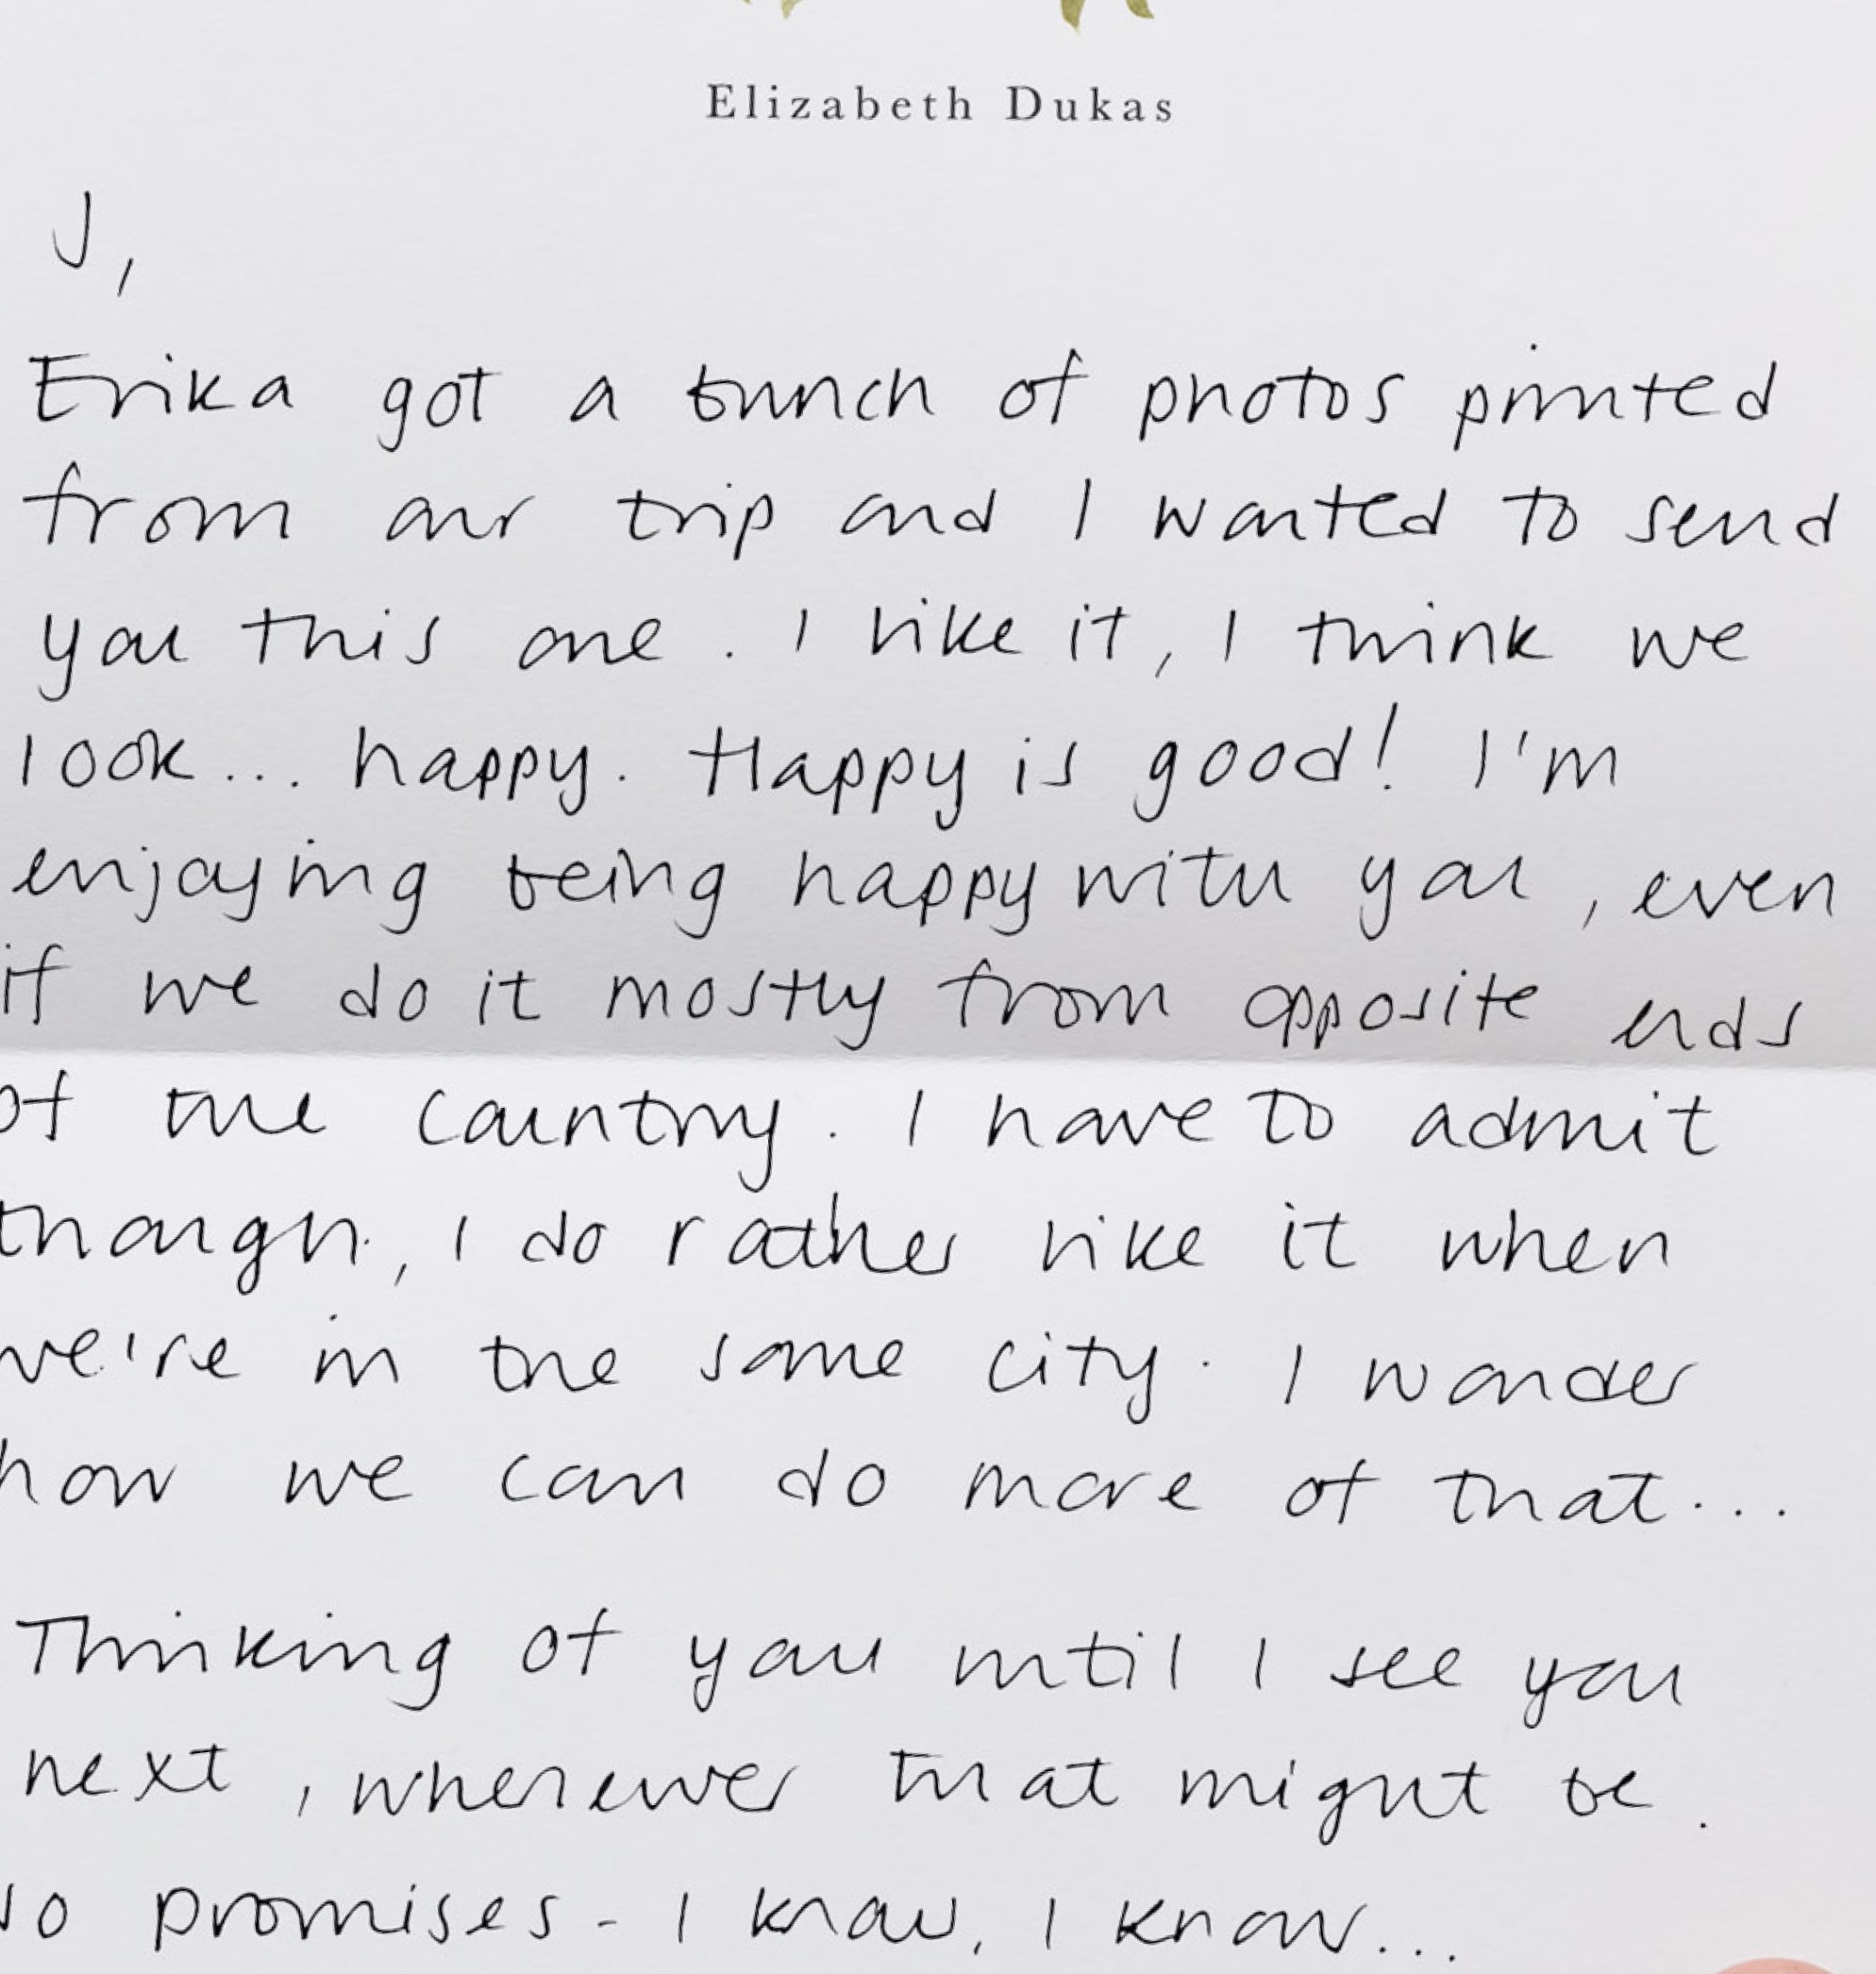 Elizabeth Dukas
J,
Erika got a bunch of photos printed
from our trip and I wanted to send
you this one. I like it, I think we
look... happy. Happy is good! I'm
enjoying being happy with you, even
if we do it mostly from opposite ends
of the country. I have to admit
though, I do rather like it when
we're in the same city. I wonder
how we can do more of that...
Thinking of you until I see you
next, wherever that might be.
No promises - I know, I know...